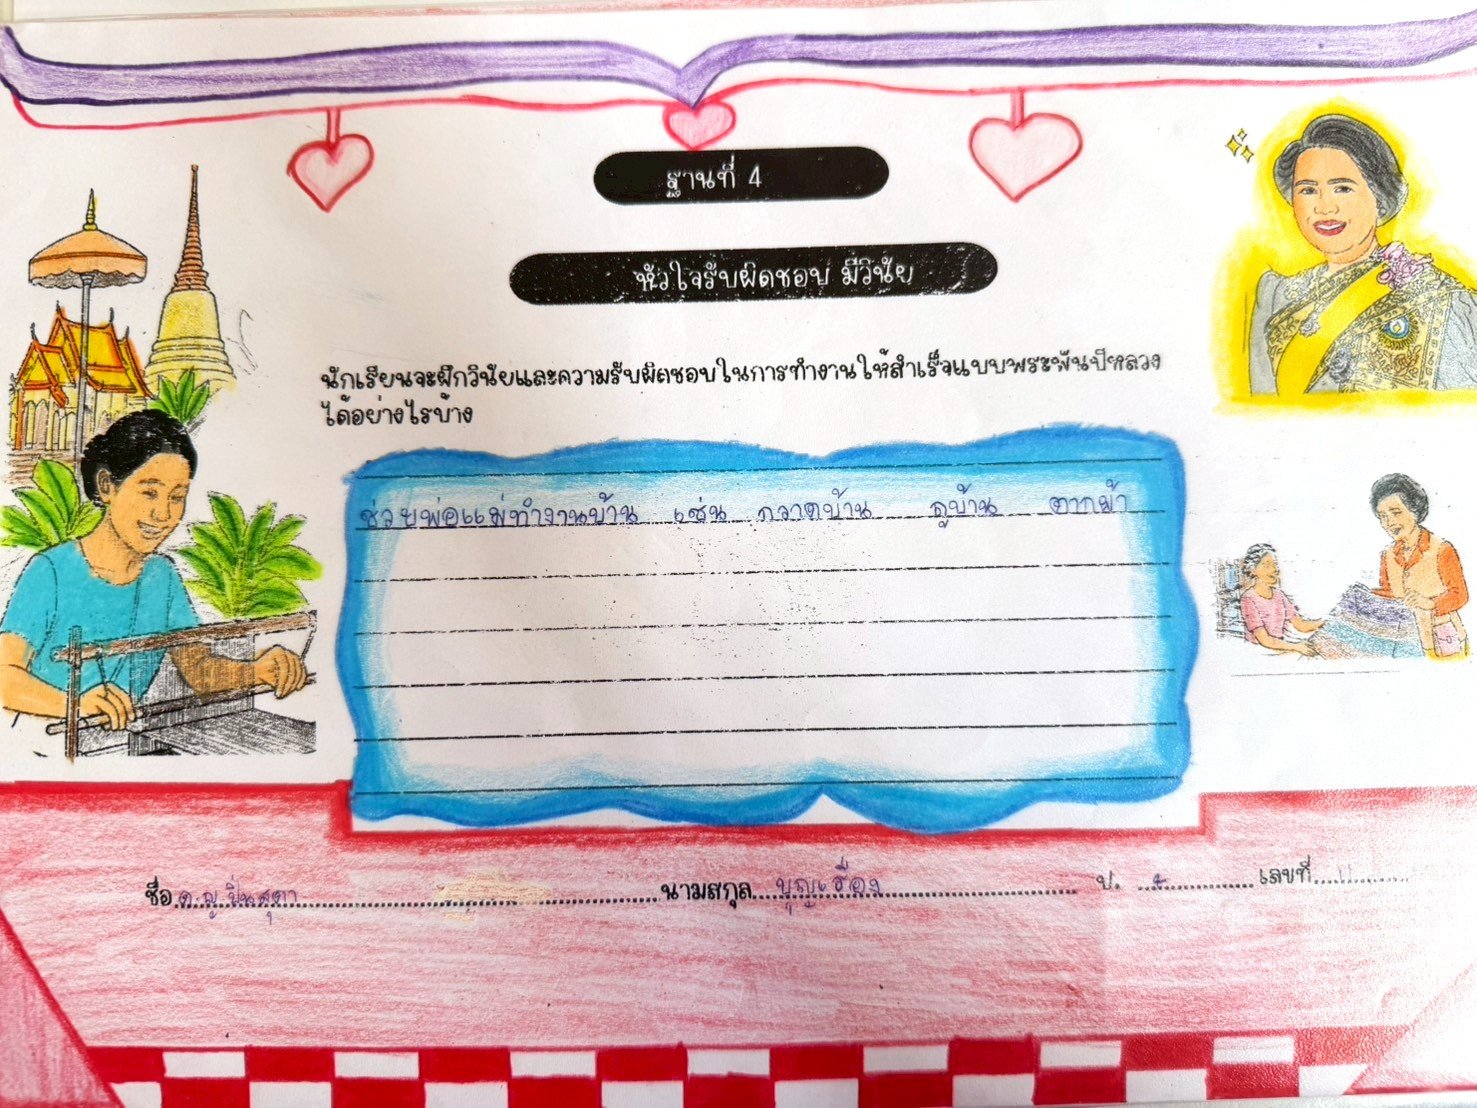 ฐานที่ 4
หัวใจรับผิดชอบ มีวินัย
นักเรียนจะฝึกวินัยและความรับผิดชอบในการทำงานให้สำเร็จแบบพระพันปีหลวง
ได้อย่างไรบ้าง
ช่วยพ่อแม่ทำงานบ้าน เช่น กวาดบ้าน ถูบ้าน ตากผ้า
ชื่อ ด.ญ ปิ่นสุดา นามสกุล บุญเรือง ป. เลขที่ 11